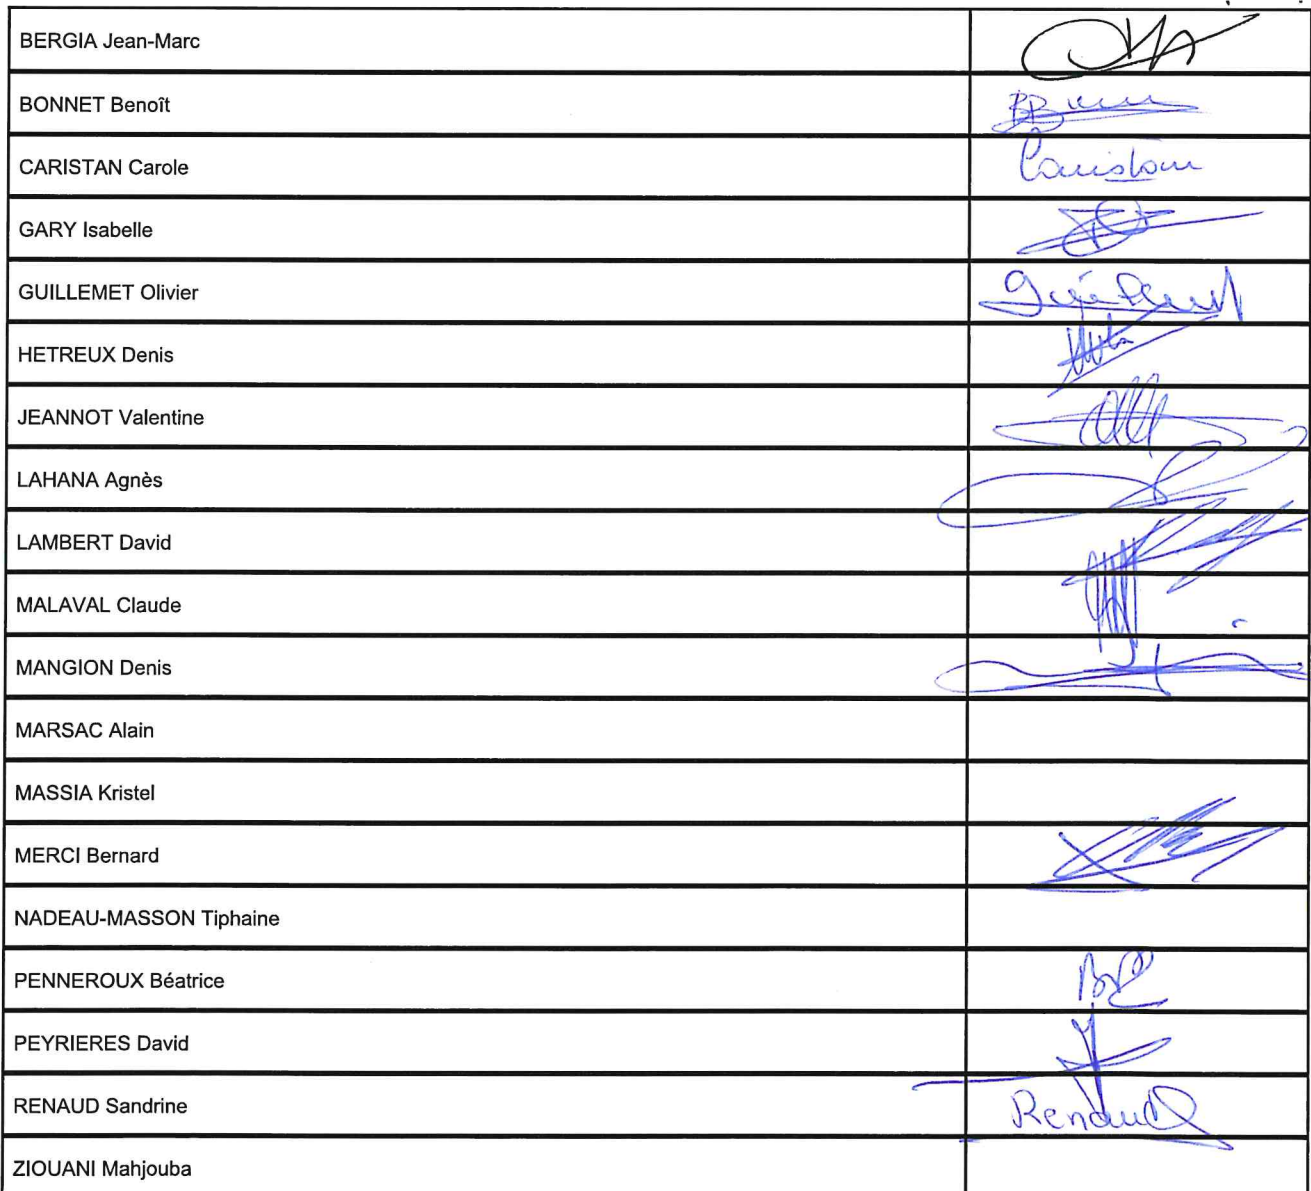 BERGIA Jean-Marc
BONNET Benoît
CARISTAN Carole Caristan
GARY Isabelle
GUILLEMET Olivier
HETREUX Denis
JEANNOT Valentine
LAHANA Agnès
LAMBERT David
MALAVAL Claude
MANGION Denis
MARSAC Alain
MASSIA Kristel
MERCI Bernard
NADEAU-MASSON Tiphaine
PENNEROUX Béatrice
PEYRIERES David
RENAUD Sandrine Renaud
ZIOUANI Mahjouba